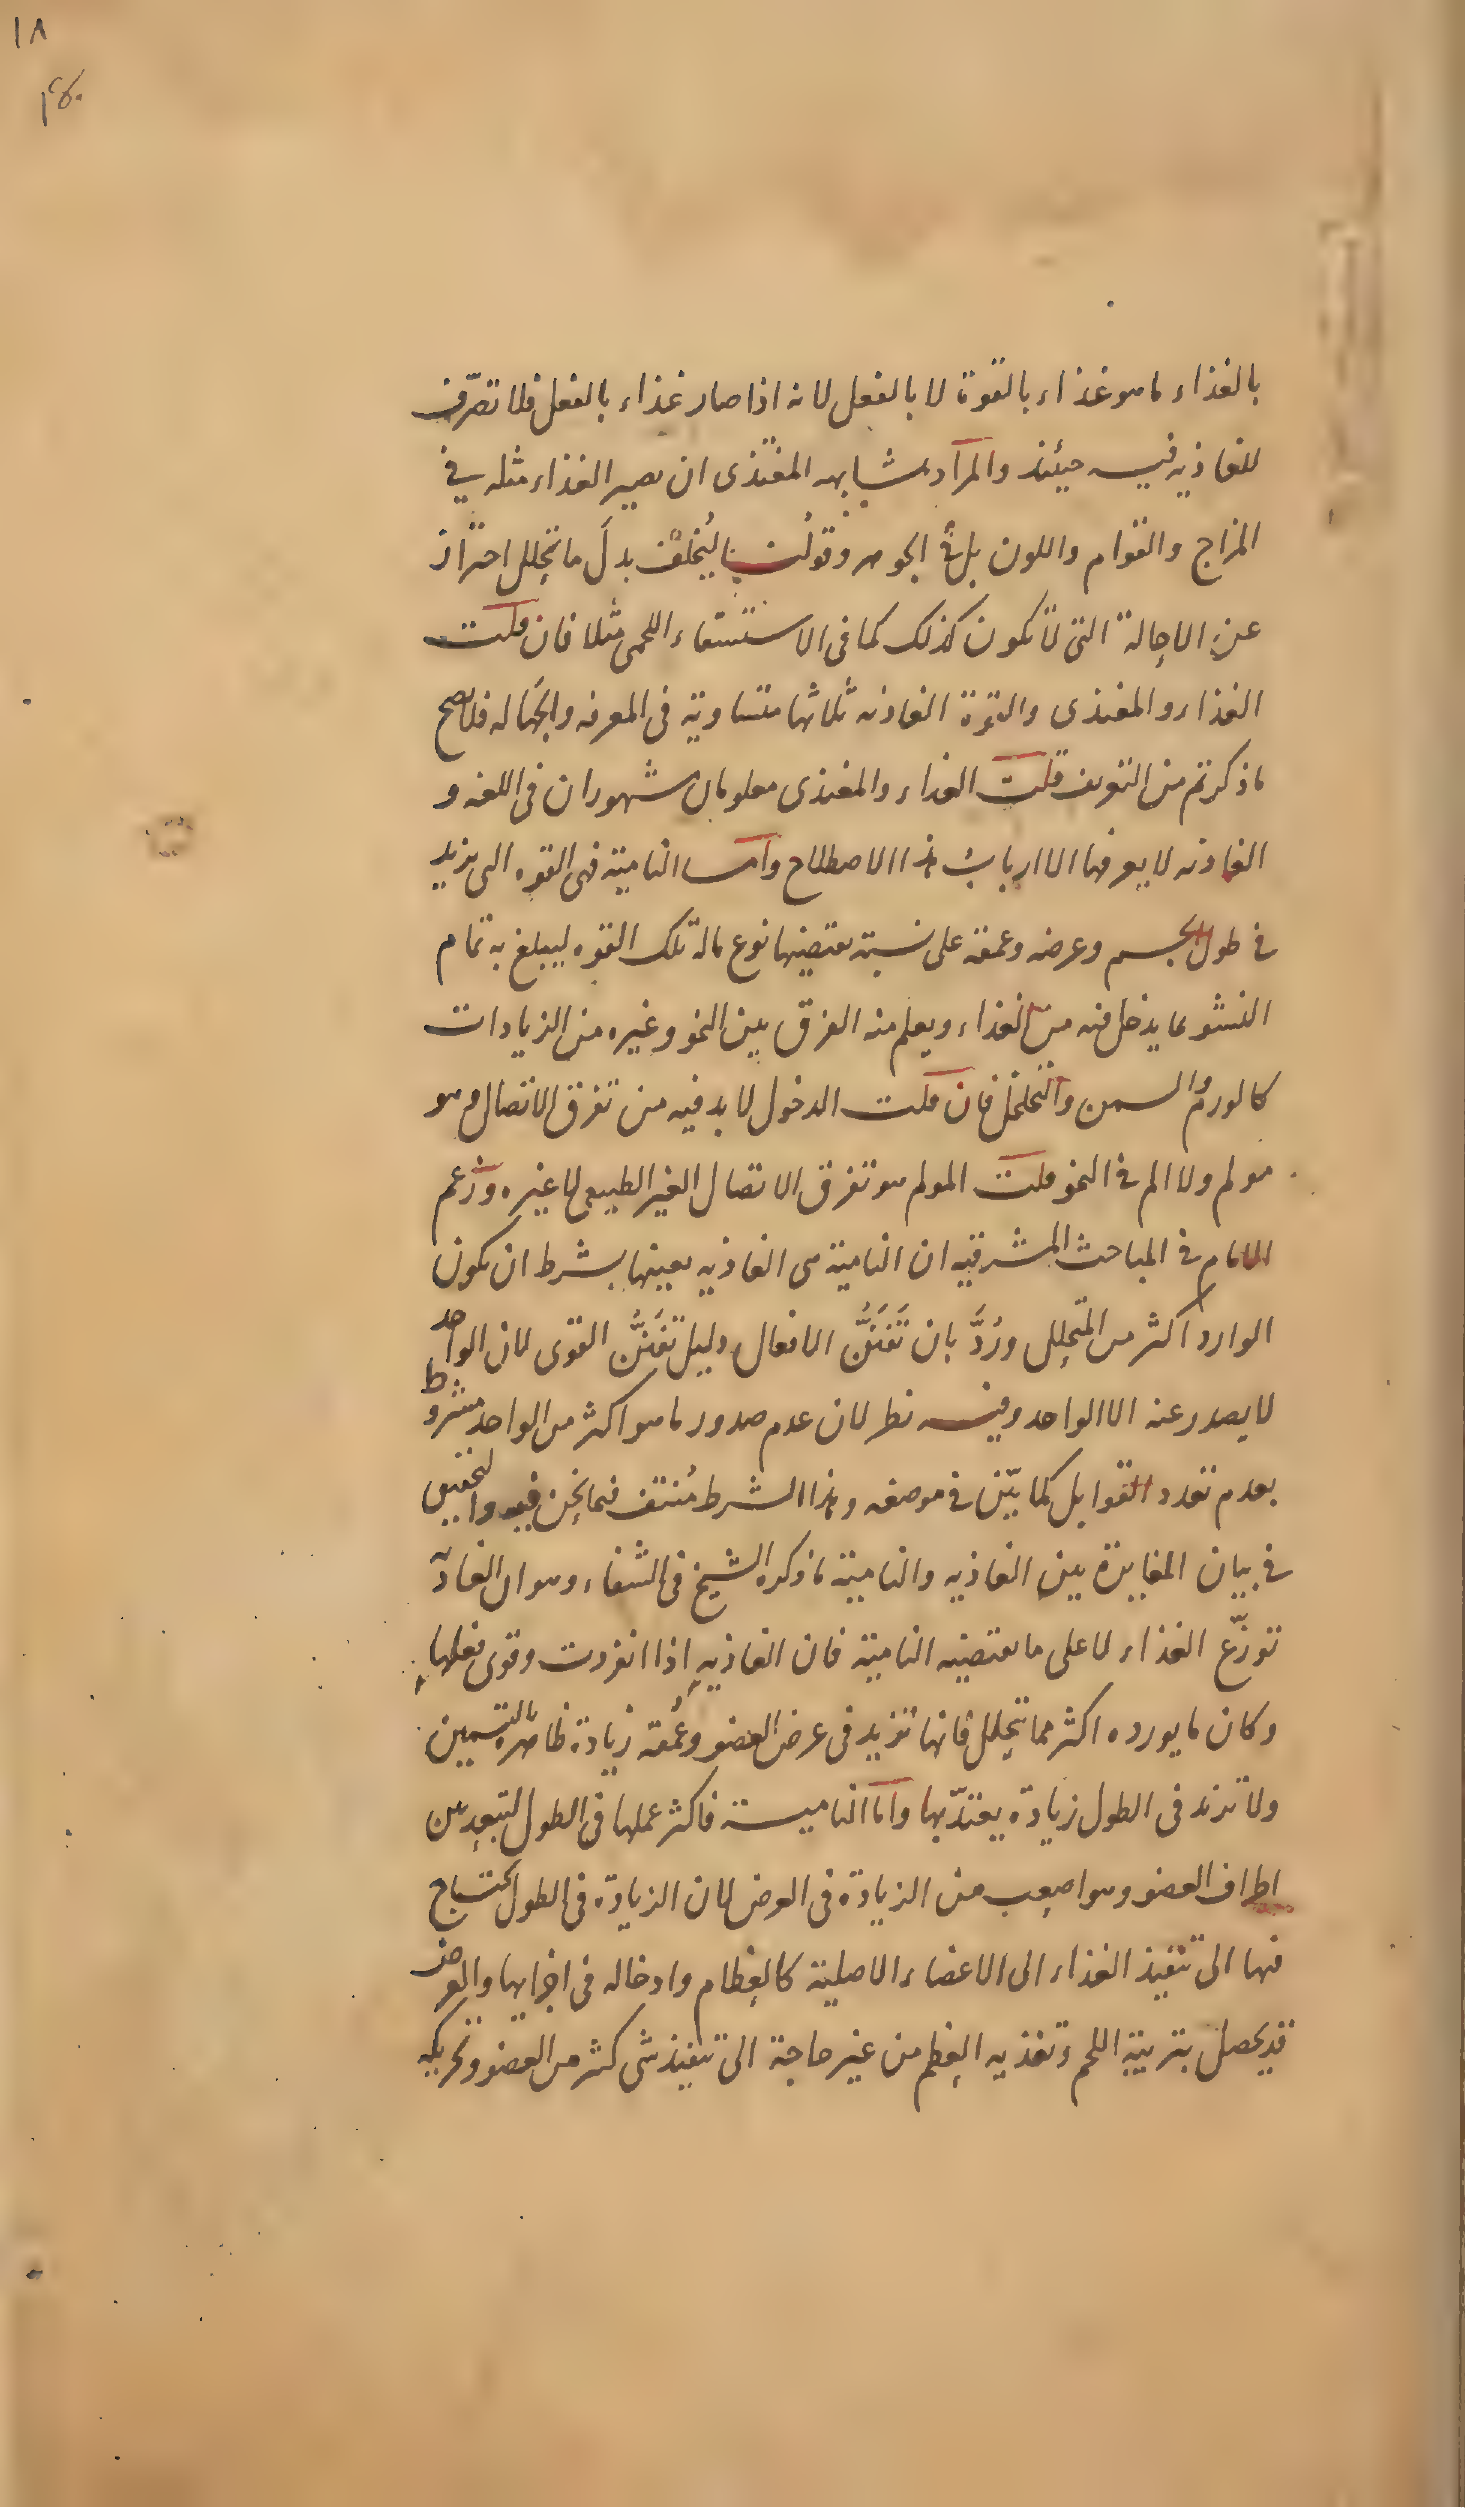 ١٨
بالغذاء ما هو غذاء بالقوة لا بالفعل لانه اذا صار غذاء بالفعل فلا تصرّف
للغاذيه فيه حينئذ والمراد بمشابهه المغتذى ان يصير الغذاء مثله في
المزاج والقوام واللون بل في الجوهر وقولنا ليُخلف بدلَ ما يتحلل احتراز
عن الاحالة التى لا تكون كذلك كما فى الاستسقاء اللحمى مثلا فان قلت
الغذاء والمغتذى والقوة الغاذيه ثلاثها متساوية فى المعرفه والجهاله فلا يصح
ما ذكرتم من التعريف قلت الغذاء والمغتذى معلومان مشهوران فى اللغه و
الغاذيه لا يعرفها الا ارباب هذا الاصطلاح وأما النامية فهى القوه التى يزيد
في طول الجسم وعرضه وعمقه على نسبة يقتضيها نوع ماله تلك القوه ليبلغ به تمام
النشو بما يدخل فيه من الغذاء ويعلم منه الفرق بين النمو وغيره من الزيادات
كالورم والسمن والتخلخل فان قلت الدخول لا بد فيه من تفرق الاتصال وهو
مولم ولا الم في النمو قلت المولم هو تفرق الاتصال الغير الطبيعى لا غيره وزعم
الامام في المباحث المشرقيه ان النامية هى الغاذيه بعينها بشرط ان يكون
الوارد اكثر من المتحلل ورُدَّ بان تَفَنُّن الافعال دليل تَفَنُّن القوى لان الواحد
لا يصدر عنه الا الواحد وفيه نظر لان عدم صدور ما هو اكثر من الواحد مشروط
بعدم تعدد القوابل كما بيّن في موضعه وهذا الشرط مُنتف فيما نحن فيه والتحقيق
في بيان المغايرة بين الغاذيه والنامية ما ذكره الشيخ فى الشفاء وهو ان الغاذ
توزّع الغذاء لا على ما يقتضيه النامية فان الغاذيه اذا انفردت وقوى فعلها
وكان ما يورده اكثر مما يتحلل فانها تزيد فى عرض العضو وعُمقه زيادة ظاهرة بالتسمين
ولا تزيد فى الطول زيادة يعتدّ بها وأما النامية فاكثر عملها فى الطول لتبعد بين
اطراف العضو وهو اصعب من الزيادة فى العرض لان الزيادة فى الطول يحتاج
فيها الى تنفيذ الغذاء الى الاعضاء الاصلية كالعظام وادخاله فى اجزايها والعرض
قد يحصل بتربية اللحم وتغذيه العظم من غير حاجة الى تنفيذ شى كثير من العضو وتحريكه